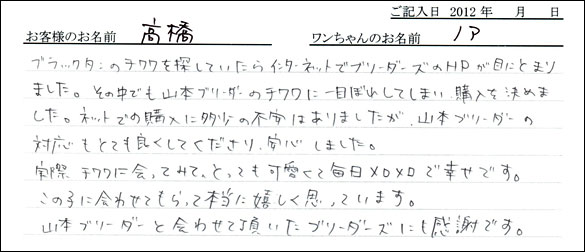 ご記入日 2012 年 月 日
お客様のお名前 高橋 ワンちゃんのお名前 ノア
ブラックタンのチワワを探していたらインターネットでブリーダーズのHPが目にとまり
ました。その中でも山本ブリーダーのチワワに一目ぼれしてしまい、購入を決めま
した。ネットでの購入に多少の不安はありましたが、山本ブリーダーの
対応もとても良くしてくださり、安心しました。
実際チワワに会ってみて、とっても可愛くて毎日メロメロで幸せです。
この子に会わせてもらって本当に嬉しく思っています。
山本ブリーダーと会わせて頂いたブリーダーズにも感謝です。